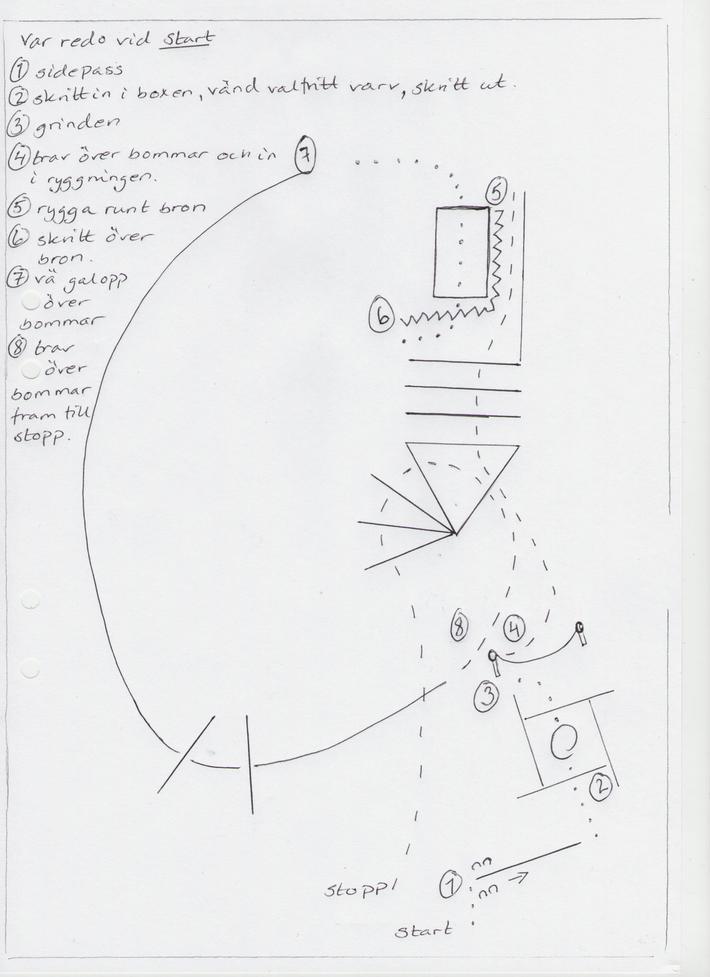 Var redo vid Start
① sidepass
② skritt in i boxen, vänd valfritt varv, skritt ut.
③ grinden
④ trav över bommar och in
i ryggningen.
⑤ rygga runt bron
⑥ skritt över
bron.
⑦ vä galopp
över
bommar
⑧ trav
över
bommar
fram till
stopp.
⑦
⑤
⑥
⑧ ④
③
②
stopp!
①
start